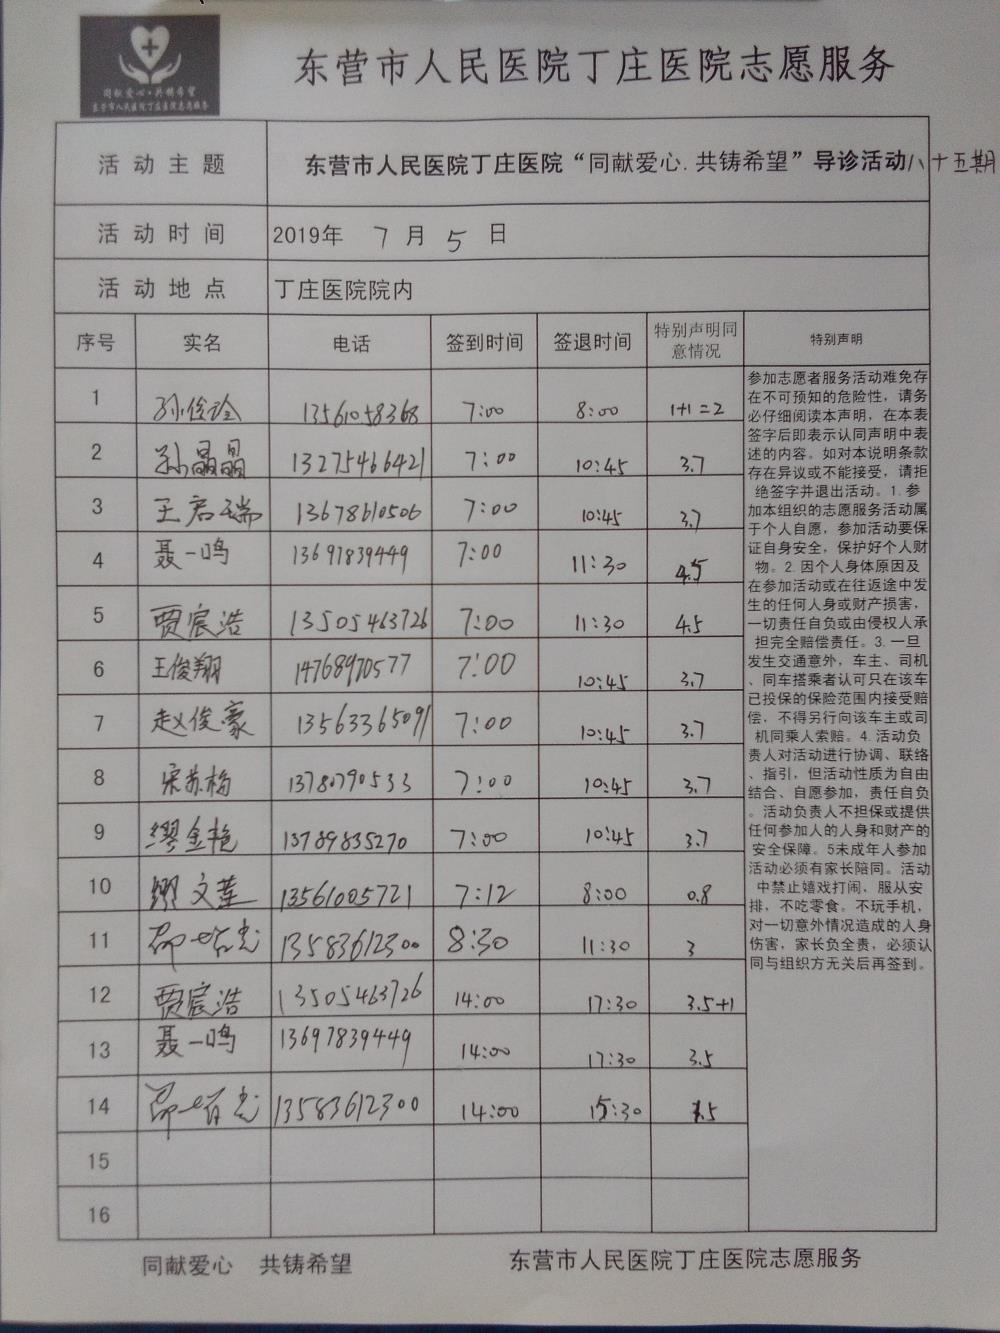 同献爱心·共铸希望
东营市人民医院丁庄医院志愿服务
东营市人民医院丁庄医院志愿服务
活动主题 东营市人民医院丁庄医院“同献爱心.共铸希望”导诊活动八十五期
活动时间 2019年 7 月 5 日
活动地点 丁庄医院院内
序号 实名 电话 签到时间 签退时间 特别声明同意情况 特别声明
1 孙俊 13561058368 7:00 8:00 1+1=2
2 孙晶晶 13275466421 7:00 10:45 3.7
3 王君瑞 13678610506 7:00 10:45 3.7
4 聂一鸣 13697839449 7:00 11:30 4.5
5 贾宸浩 13505463726 7:00 11:30 4.5
6 王俊翔 14768970577 7:00 10:45 3.7
7 赵俊豪 13563365091 7:00 10:45 3.7
8 宋苏梅 13780790533 7:00 10:45 3.7
9 缪金艳 13789835270 7:00 10:45 3.7
10 缪文莲 13561005721 7:12 8:00 0.8
11 13583612300 8:30 11:30 3
12 贾宸浩 13505463726 14:00 17:30 3.5+1
13 聂一鸣 13697839449 14:00 17:30 3.5
14 13583612300 14:00 15:30 1.5
15
16
参加志愿者服务活动难免存
在不可预知的危险性，请务
必仔细阅读本声明，在本表
签字后即表示认同声明中表
述的内容。如对本说明条款
存在异议或不能接受，请拒
绝签字并退出活动。1.参
加本组织的志愿服务活动属
于个人自愿，参加活动要保
证自身安全，保护好个人财
物。2.因个人身体原因及
在参加活动或在往返途中发
生的任何人身或财产损害，
一切责任自负或由侵权人承
担完全赔偿责任。3.一旦
发生交通意外，车主、司机
、同车搭乘者认可只在该车
已投保的保险范围内接受赔
偿，不得另行向该车主或司
机同乘人索赔。4.活动负
责人对活动进行协调、联络
、指引，但活动性质为自由
结合、自愿参加，责任自负
。活动负责人不担保或提供
任何参加人的人身和财产的
安全保障。5未成年人参加
活动必须有家长陪同。活动
中禁止嬉戏打闹，服从安
排，不吃零食。不玩手机，
对一切意外情况造成的人身
伤害，家长负全责，必须认
同与组织方无关后再签到。
同献爱心 共铸希望 东营市人民医院丁庄医院志愿服务